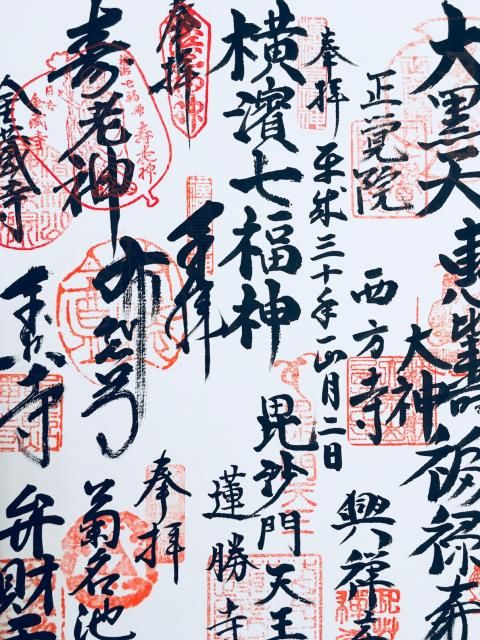 大黒天
正覚院
奉拝
平成三十年正月二日
横濱七福神
奉拝
寿老神
金蔵寺
恵比寿
大神
西方寺
奉拝
布袋尊
東照寺
福禄寿
興禅
毘沙門天王
蓮勝寺
奉拝
菊名池
弁財天